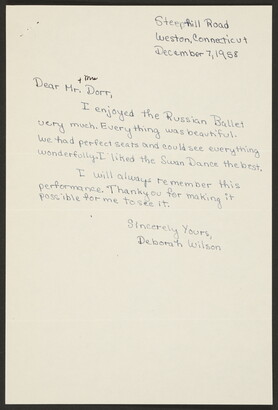 Steephill Road
Weston, Connecticut
December 7, 1958
Dear Mr. + Mrs Dorr,
I enjoyed the Russian Ballet
very much. Everything was beautiful.
We had perfect seats and could see everything
wonderfully. I liked the Swan Dance the best.
I will always remember this
performance. Thank you for making it
possible for me to see it.
Sincerely Yours,
Deborah Wilson